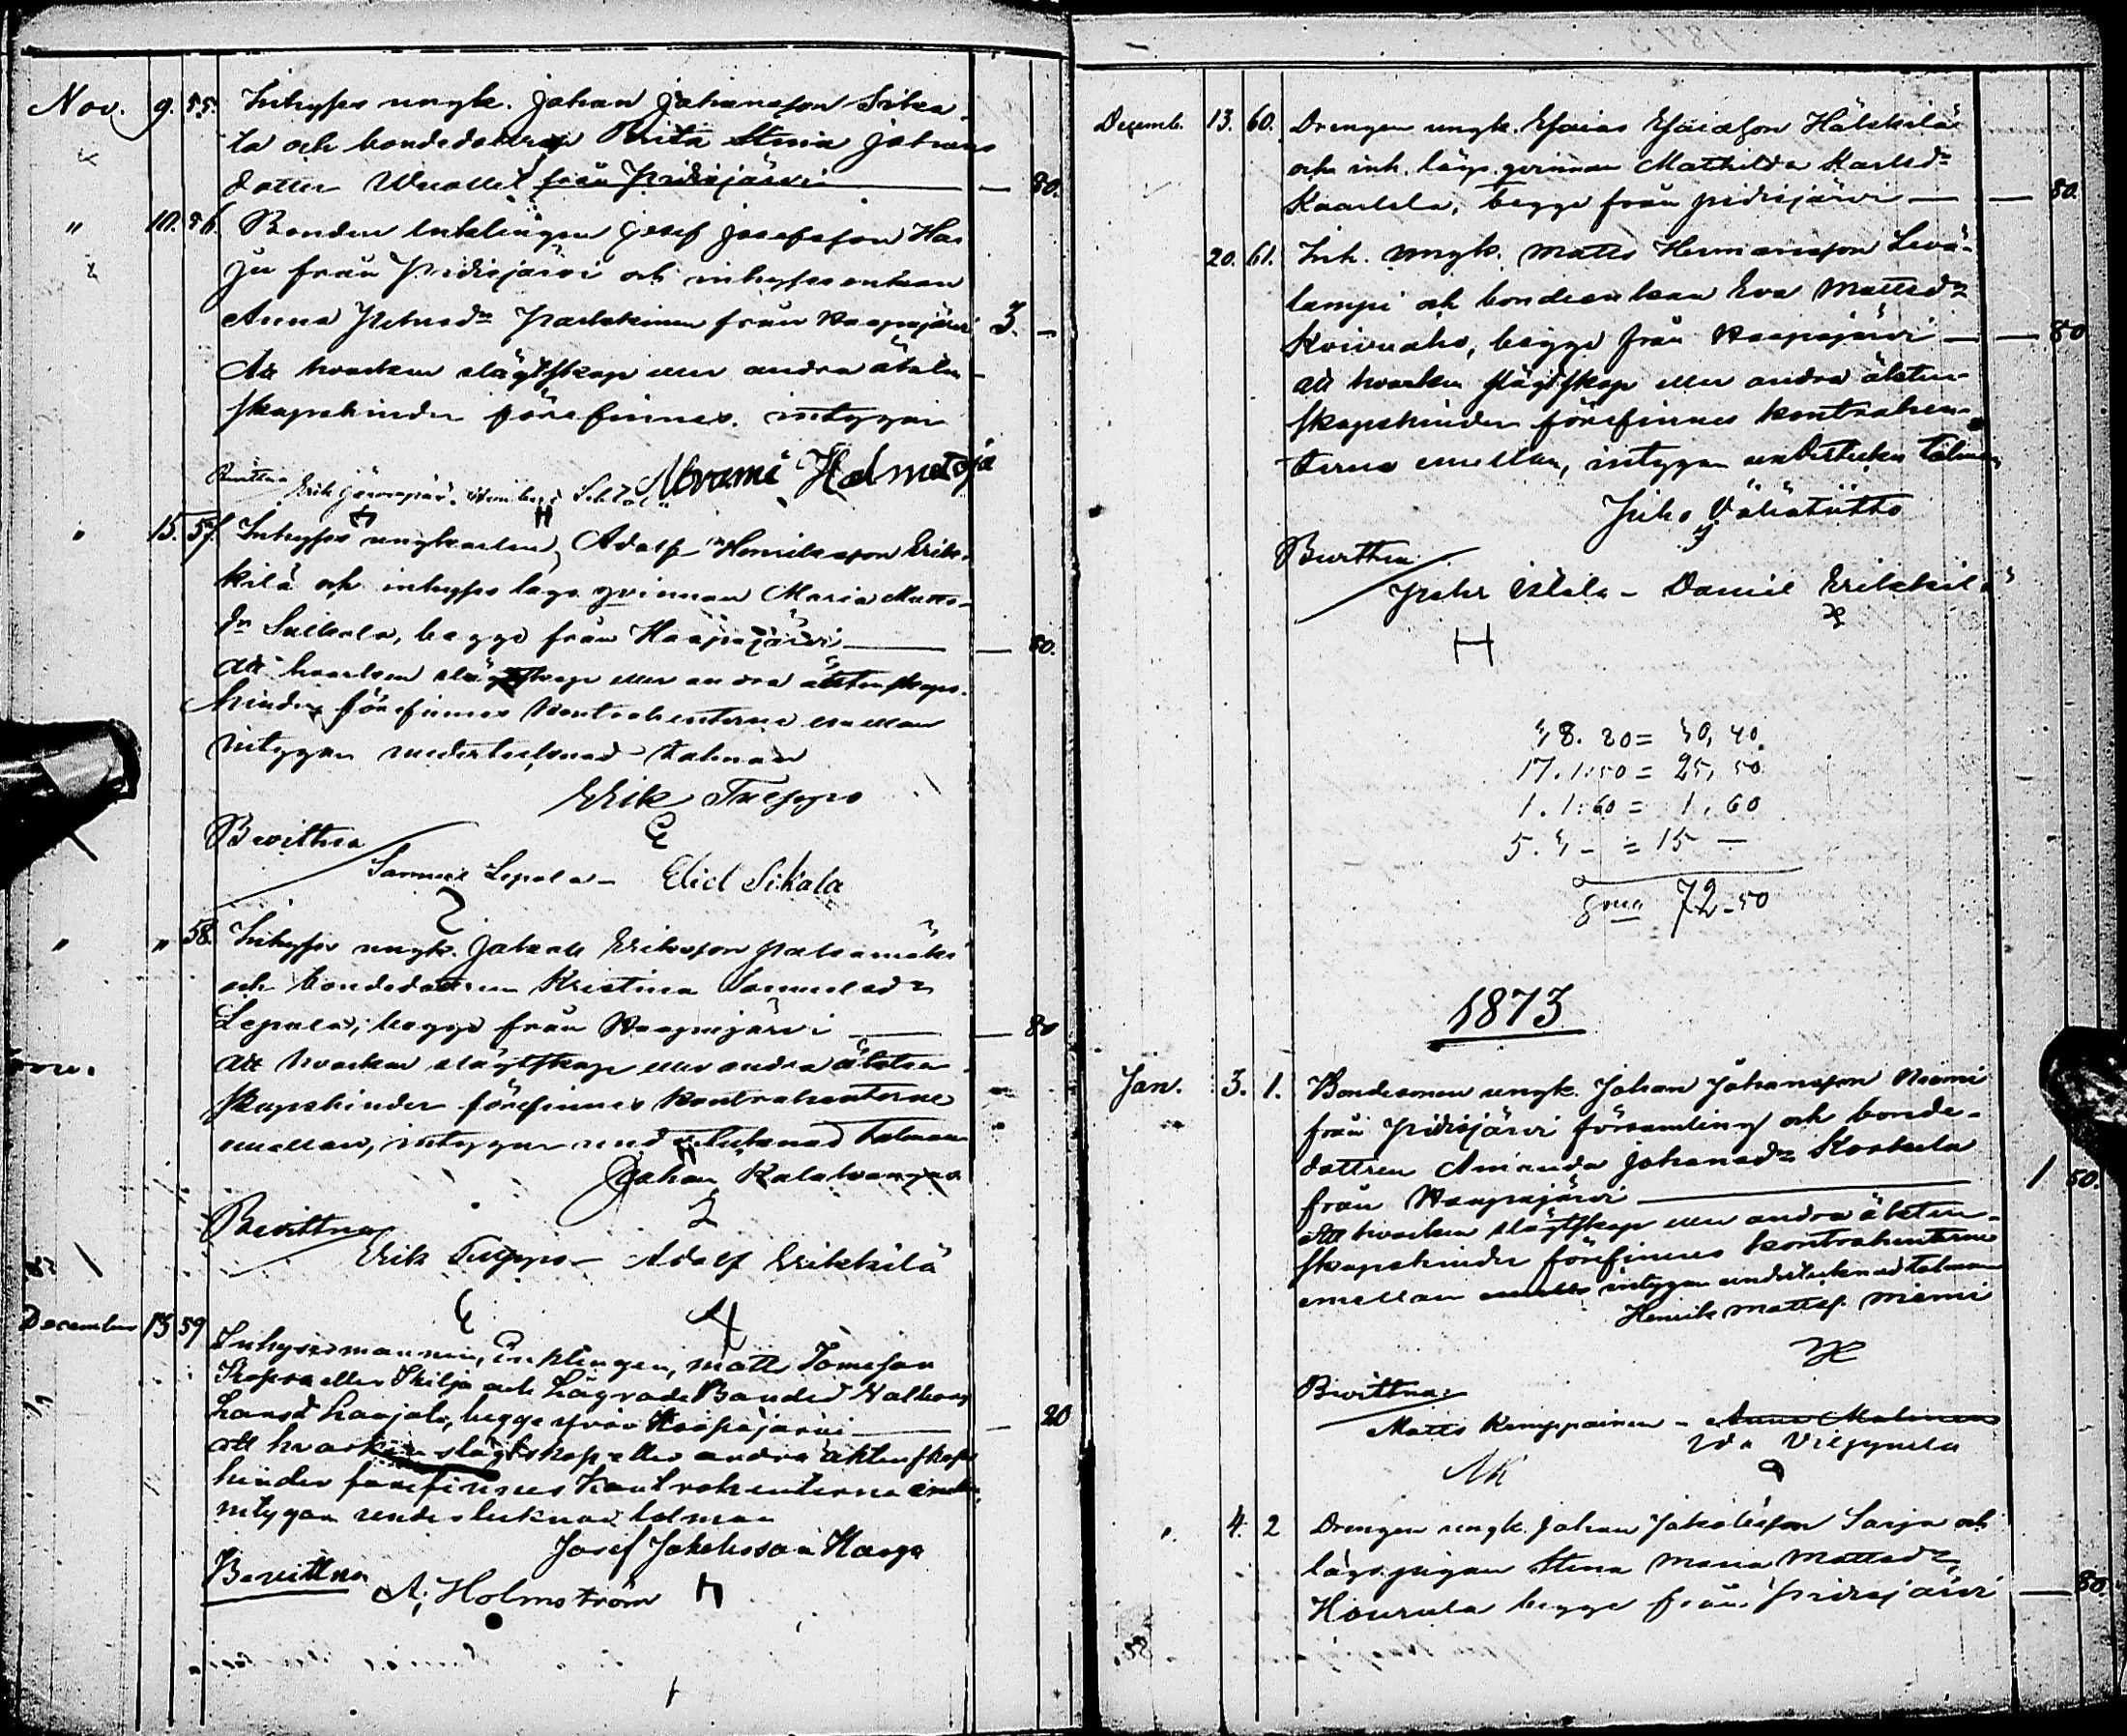 Nov. 9. 55. Inhyses ungk. Johan Johansson Sika-
la och bondedottren Brita Stina Johans
dotter från Pidisjärvi — 80.
" 10. 56. Bonden Enklingen Josef Josefsson Har
ju från Pidisjärvi och inhyses enkan
Anna från Haapajärvi 3. —
Att hvarken slägtskap eller andra äkten-
skapshinder förefinnes intygar
Bevittna Erik Abrami Halmetoja
" 15. 57. Inhyses ungkarlen Adolf Henriksson Erik-
kilä och inhyses lägs. qvinnan Maria Matts-
dr begge från Haapajärvi — 80.
Att hvarken slägtskap eller andra äktenskaps-
hinder förefinnes kontrahenterne emellan
intygar undertecknad talman
Erik Tueppo
E
Bevittna
Samuel Lepola – Elid Sikala
" " 58. Inhyses ungk. Jakob Eriksson
och bondedottren Kristina Samuelsdr
Lepola, begge från Haapajärvi — 80
Att hvarken slägtskap eller andra äkten-
skapshinder förefinnes kontrahenterne
emellan, intygar undertecknad talman
Johan
Bevittna
Erik Tueppo – Adolf Erikkilä
December 13 59 Inhysesmannen, Enklingen, Matts Tomasson
eller Skilja och Lägrade Bonded Valborg
begge från Haapajärvi — 20
att hvarken slägtskap eller andra äktenskaps
hinder förefinnes kontrahenterna emellan
intygar undertecknad talman
Josef Jakobsson Harju
Bevittna A. Holmström
Decemb. 13. 60. Drengen ungk. Esaias Esaiasson
och inh. lägs. qvinnan Mathilda Karlsdr
Kaarlela, begge från Pidisjärvi — 80.
20. 61. Inh. ungk. Matts Hermansson Levä-
lampi och bondeenkan Eva Mattsdr
Koivuaho, begge från Haapajärvi — 80
att hvarken slägtskap eller andra äkten-
skapshinder förefinnes kontrahen-
terna emellan, intygar undertecknad talman
Juho Vähätiitto
Bevittna
Pehr – Daniel Erikkilä
H
38. 80 = 30, 40.
17. 1:50 = 25, 50
1. 1:60 = 1, 60
5. 3 – = 15 —
Sma 72-50
1873
Jan. 3. 1. Bondesonen ungk. Johan Johansson Niemi
från Pidisjärvi församling och bonde-
dottren Amanda Johansdr
från Haapajärvi — 1 50.
Att hvarken slägtskap eller andra äkten-
skapshinder förefinnes kontrahenterne
emellan intygar undertecknad talman
Henrik Mattss. Niemi
Bevittna:
Matts Kemppainen –
AK
" 4. 2 Drengen ungk. Johan Jakobsson Sarja och
lägs. pigan Stina Maria Mattsdr
begge från Pidisjärvi — 80.